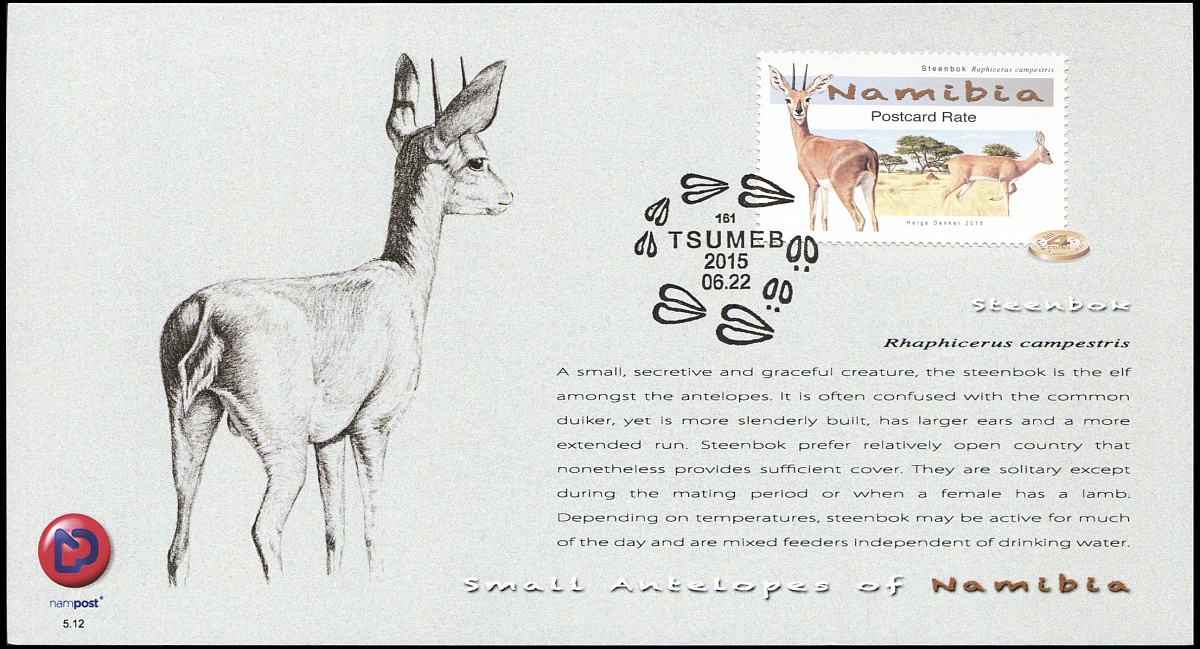 Steenbok Raphicerus campestris
Namibia
Postcard Rate
Helge Denker 2015
161
TSUMEB
2015
06.22
Steenbok
Rhaphicerus campestris
A small, secretive and graceful creature, the steenbok is the elf
amongst the antelopes. It is often confused with the common
duiker, yet is more slenderly built, has larger ears and a more
extended run. Steenbok prefer relatively open country that
nonetheless provides sufficient cover. They are solitary except
during the mating period or when a female has a lamb.
Depending on temperatures, steenbok may be active for much
of the day and are mixed feeders independent of drinking water.
Small Antelopes of Namibia
nampost®
5.12